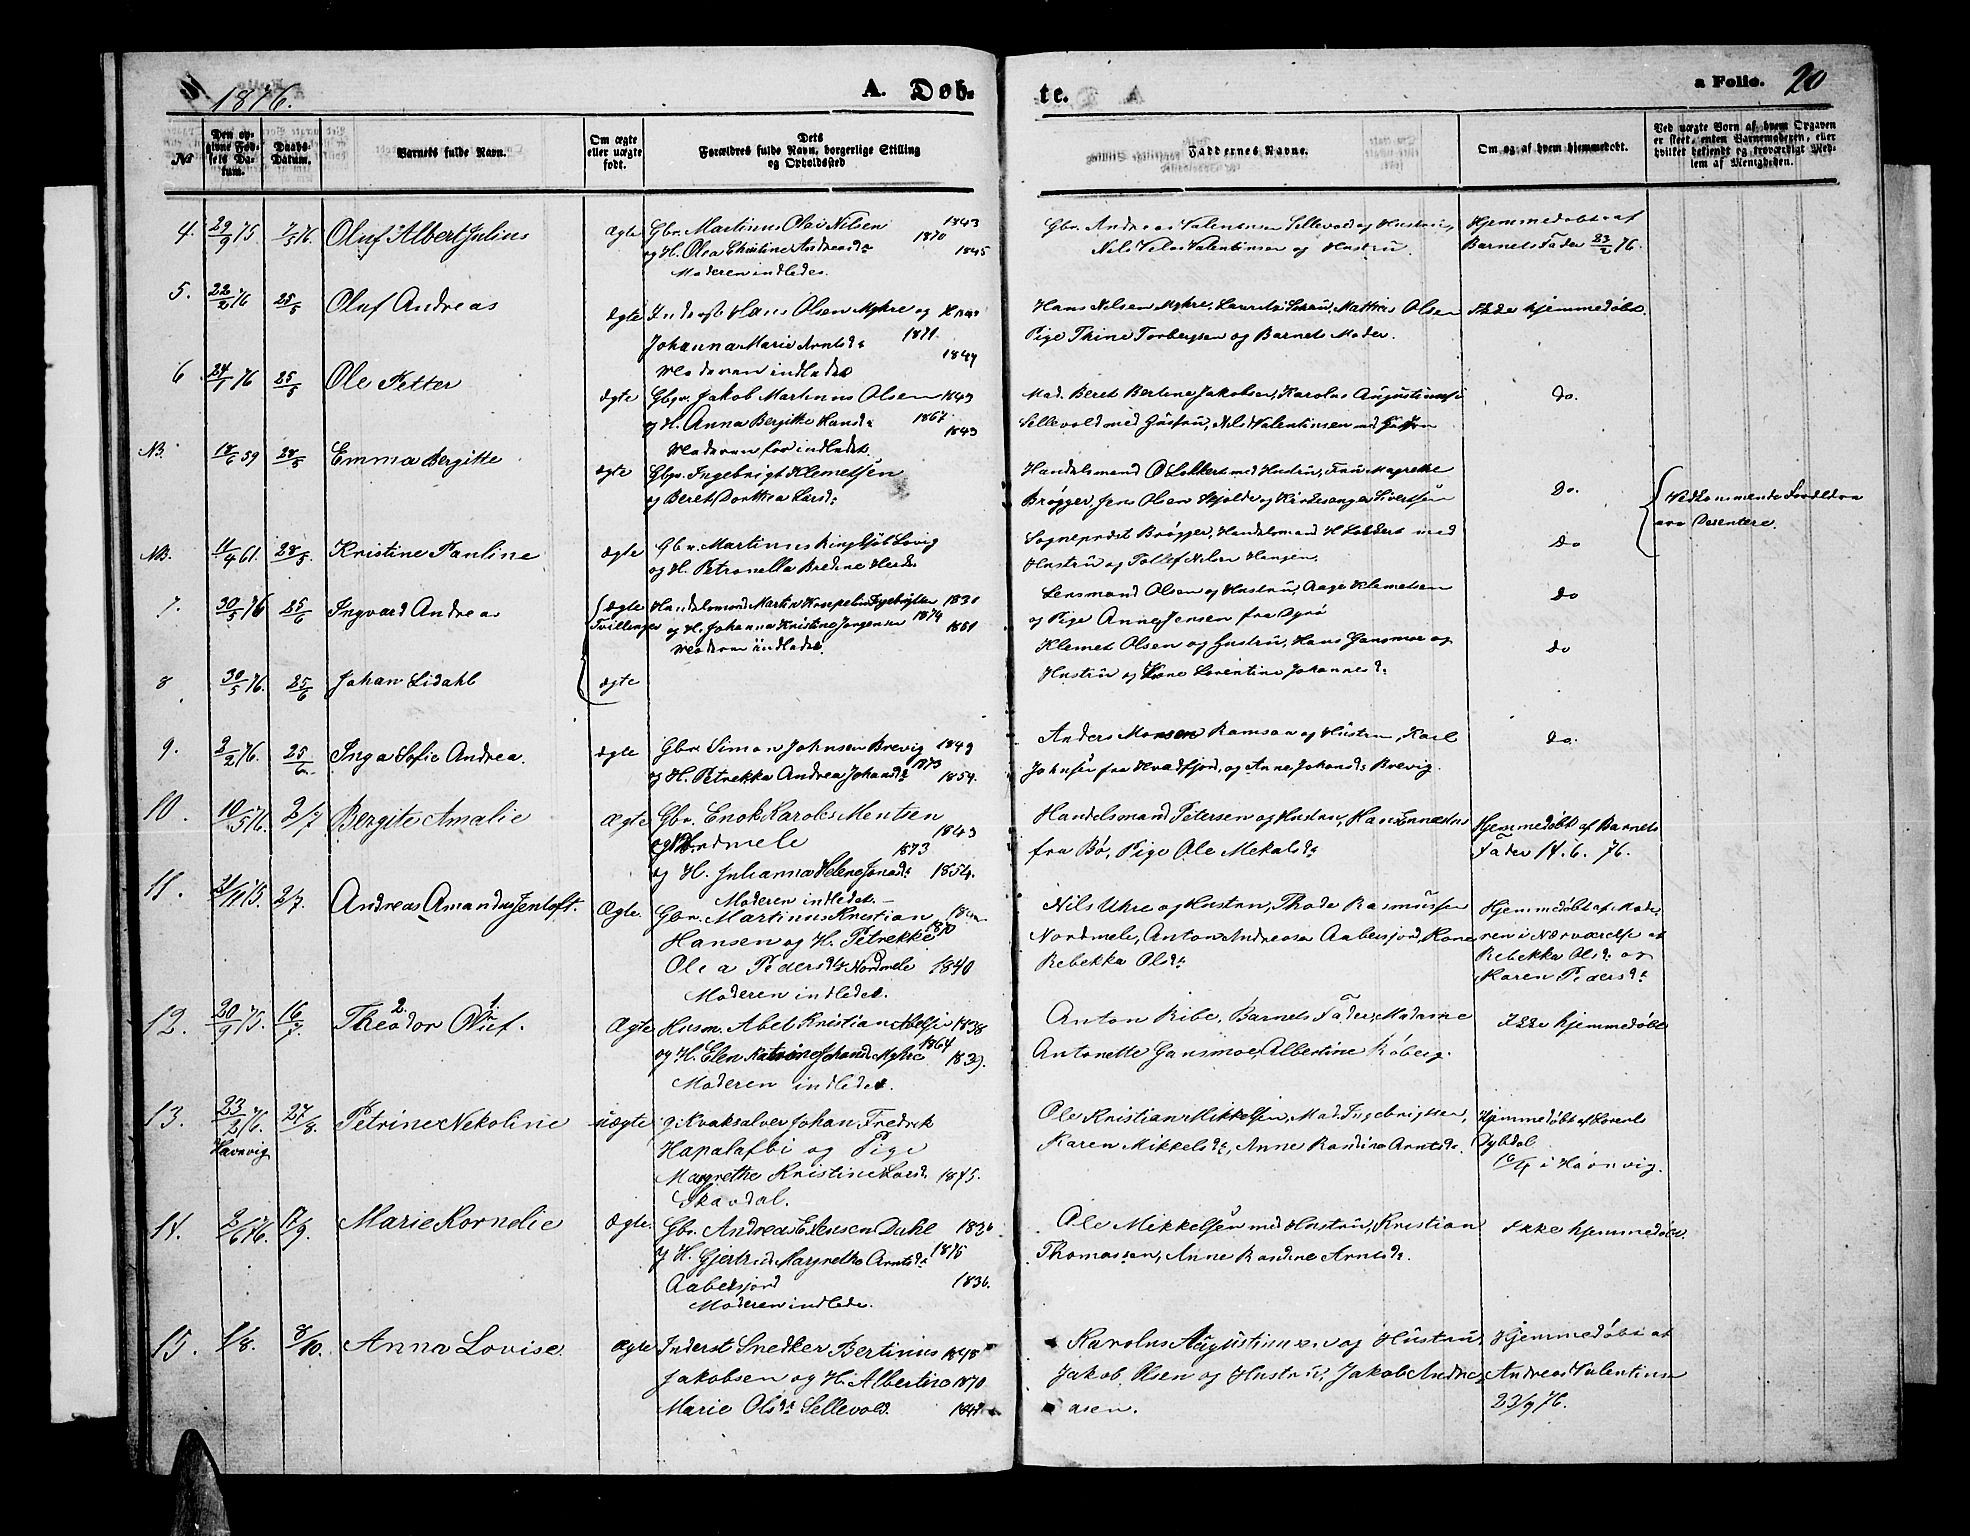 1876.
A. Døb-
te.
a Folio. 20
No
Den op-
givne Fød-
sels Da-
tum.
Daabs-
Datum.
Barnets fulde Navn.
Om ægte
eller uægte
født.
Dets
Forældres fulde Navn, borgerlige Stilling
og Opholdssted
Faddernes Navne.
Om og af hvem hjemmedøbt.
Ved uægte Born af hvem Opgaven
er skeet, enten Barnemoderen, eller
hvilket bekjendt og troværdigt Med-
lem af Menigheden.
4. 29/9 75. 7/5 76. Oluf Albert Julius ægte Gbr. Martinus Olai Nilsen 1843
1870
og H. Olea Christine Andreasdr 1845
Moderen indledes.
Gbr. Andreas Valentinsen Sellevold og Hustru,
Nils Valentinsen og Hustru.
Hjemmedøbt af
Barnets Fader 23/2 76.
5. 22/2 76 25/5 Oluf Andreas ægte Inderst Hans Olsen Myhre og Kone
Johanna Marie Arntsdr 1871.
1849
Moderen indledet
Hans Nilsen Myhre, Mathis Olsen
Pige Thine Torbergsen og Barnets Moder.
Ikke hjemmedøbt.
6 24/1 76 25/5 Ole Petter ægte Gbr. Jakob Martinus Olsen 1843
og H. Anna Bergitte Hansdr 1867.
1843
Moderen indledet.
Mad. Beret Bertine Jakobsen, Karolus Augustinusen
Sellevold med Hustru, Nils Valentinsen med Hustru
do.
NB. 18/6 59 28/5 Emma Bergitte ægte Gbr. Ingebrigt Klemetsen
og Beret Dorthea Larsdr
Handelsmand O Lokkert med Hustru, Frau Magrethe
Brøgger, Jens Olsen Skjolde og Kirkesanger Sivertsen
Do.
Vedkommende Forældre
ere Desentere.
NB. 11/4 61. 28/5. Kristine Pauline ægte Gbr. Martinus Ringkjøb Lovig
og H. Petronella Bredine Hersdr
Sogneprest Brøgger, Handelsmand H Lokkert med
Hustru og Tollef Nilsen Haugen.
Do
7. 30/5 76 25/6 Ingvard Andreas ægte
Tvillinger
Handelsmand Martin Kopelin Ingebrigtsen 1830
og H. Johanna Kristine Jørgensen 1874
1851
Moderen indledet.
Lensmand Olsen og Hustru, Aage Klemetsen
og Pige Anne Jensen fra Dyrø
do
8 30/5 76. 25/6 Johan Lidahl ægte
Klemet Olsen og Hustru, Hans Gansmoe og
Hustru og Kone Lorentine Johannesdr
do
9. 2/2 76. 25/6. Inga Sofie Andrea. ægte Gbr. Simon Johnsen Brevig 1849
1873
og H. Petrekka Andrea Johansdr 1854.
Anders Monsen Ramsaa og Hustru, Karl
Johnsen fra Kvadfjord, og Anne Johansdr Brevig.
do.
10. 10/5 76. 2/7 Bergite Amalie Ægte Gbr. Enok Karoles Mentsen
1843
Nordmele
1873
og H. Julianna Helene Jonsdr 1854.
Moderen indledet.
Handelsmand Petersen og Hustru, Hans
fra Bø, Pige Ole Mekalsdr
Hjemmedøbt af Barnets
Fader 14.6.76.
11. 21/11 75. 2/7. Andreas Amandus Jentoft. Ægte. Gbr. Martinus Kristian
1870
Hansen og H. Petrekke
Olea Pedersdr Nordmele 1840
Moderen indledet.
Nils Uhre og Hustru, Thoda Rasmussen
Nordmele, Anton Andreasen Aabersjord, Kone
Rebekka Olsdr
Hjemmedøbt af Mode-
ren i Nærværelse af
Rebekka Olsdr og
Karen Pedersdr
12. 20/9 75. 16/7. 2. 1.
Theodor Oluf. Ægte Husm. Abel Kristian Abelsen 1838
1864
og H. Elen Katrine Johansdr Myhre 1839.
Moderen indledet.
Anton Ribe, Barnets Fader, Madame
Antonette Gansmoe, Albertine Røberg.
Ikke hjemmedøbt
13. 23/2 76. 27/8. Petrine Nekoline uægte g. Kvaksalver Johan Fredrik
Havnvig
Hapalafbi og Pige
Margrethe Kristine Larsdr 1845.
Skavdal.
Ole Kristian Mikkelsen, Mad. Ingebrigtsen,
Karen Mikkelsdr, Anne Randine Arntsdr.
Hjemmedøbt af Lorents
Dybdal
16/4 i Havnvig.
14. 2/6 76. 17/9. Marie Kornelie Ægte. Gbr. Andreas Edensen Dahl 1836
og H. Gjertrud Margrethe Arntsdr 1875
Aabersjord 1836.
Moderen indledes.
Ole Mikkelsen med Hustru, Kristian
Thomassen, Anne Randine Arntsdr.
Ikke hjemmedøbt.
15. 1/8. 8/10. Anna Lovise. Ægte Inderst Snedker Bertinus 1848
Jakobsen og H. Albertine 1870
Marie Olsdr Sellevold.
Karolus Augustinusen og Hustru,
Jakob Olsen og Hustru, Jakob Andre-
asen.
Hjemmedøbt af
Andreas Valentinsen
23/9 76.